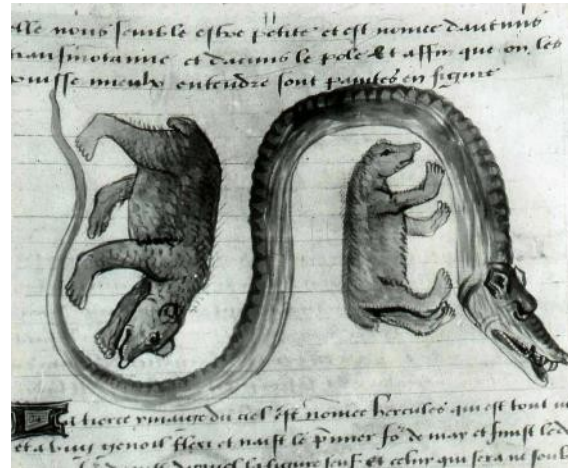 elle nous semble estre petite et est nomee daucuns
transmotanne et dacuns le pole et affin que on les
puisse mieulx entendre sont paintes en figure
La tierce ymaige du ciel est nomee hercules qui est tout
et a ung genoil flexi et naist le premier jo de may et
la figure et celuy qui sera ne soubz